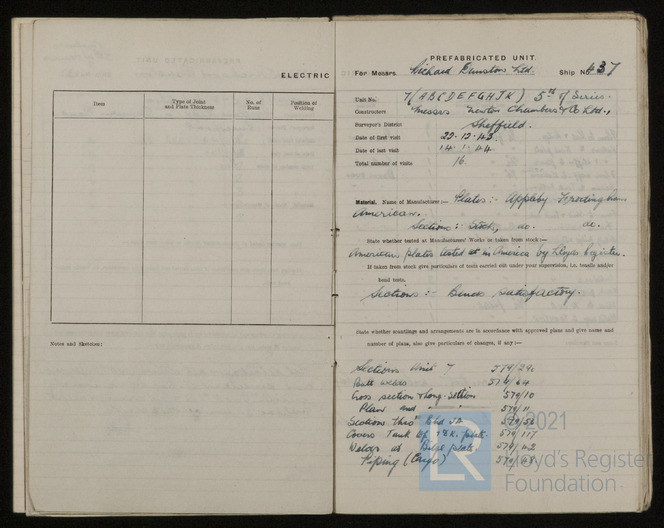 ELECTRIC
Item
Type of Joint and Plate Thickness
No. of Runs
Position of Welding
Notes and Sketches:
PREFABRICATED UNIT.
For Messrs. Richard Dunston Ltd. Ship No. 437
Unit No. 7 (A B C D E F G H J K) 5th of Series.
Constructors Messrs Newton Chambers & Co Ltd.,
Surveyor's District Sheffield.
Date of first visit 22-12-43
Date of last visit 14-1-44
Total number of visits 16.
Material. Name of Manufacturer:— Plates:- Appleby Frodingham
American.
Sections:- Stock, do. do.
State whether tested at Manufacturers' Works or taken from stock:—
American plates tested in America by Lloyds Register.
If taken from stock give particulars of tests carried out under your supervision, i.e. tensile and/or
bend tests.
Sections:- Bends satisfactory.
State whether scantlings and arrangements are in accordance with approved plans and give name and
number of plans, also give particulars of changes, if any:—
Sections Unit 7 579/29.
Butt welds 579/64
Cross section & Long. Section 579/10
Plan and 579/11
Section thro' Bhd 579/56
Covers Tank top & Bk. plate 579/117
Welds at Bilge plate 579/42
Piping (Cargo) 579/48
©2021
LR
Lloyd's Register
Foundation